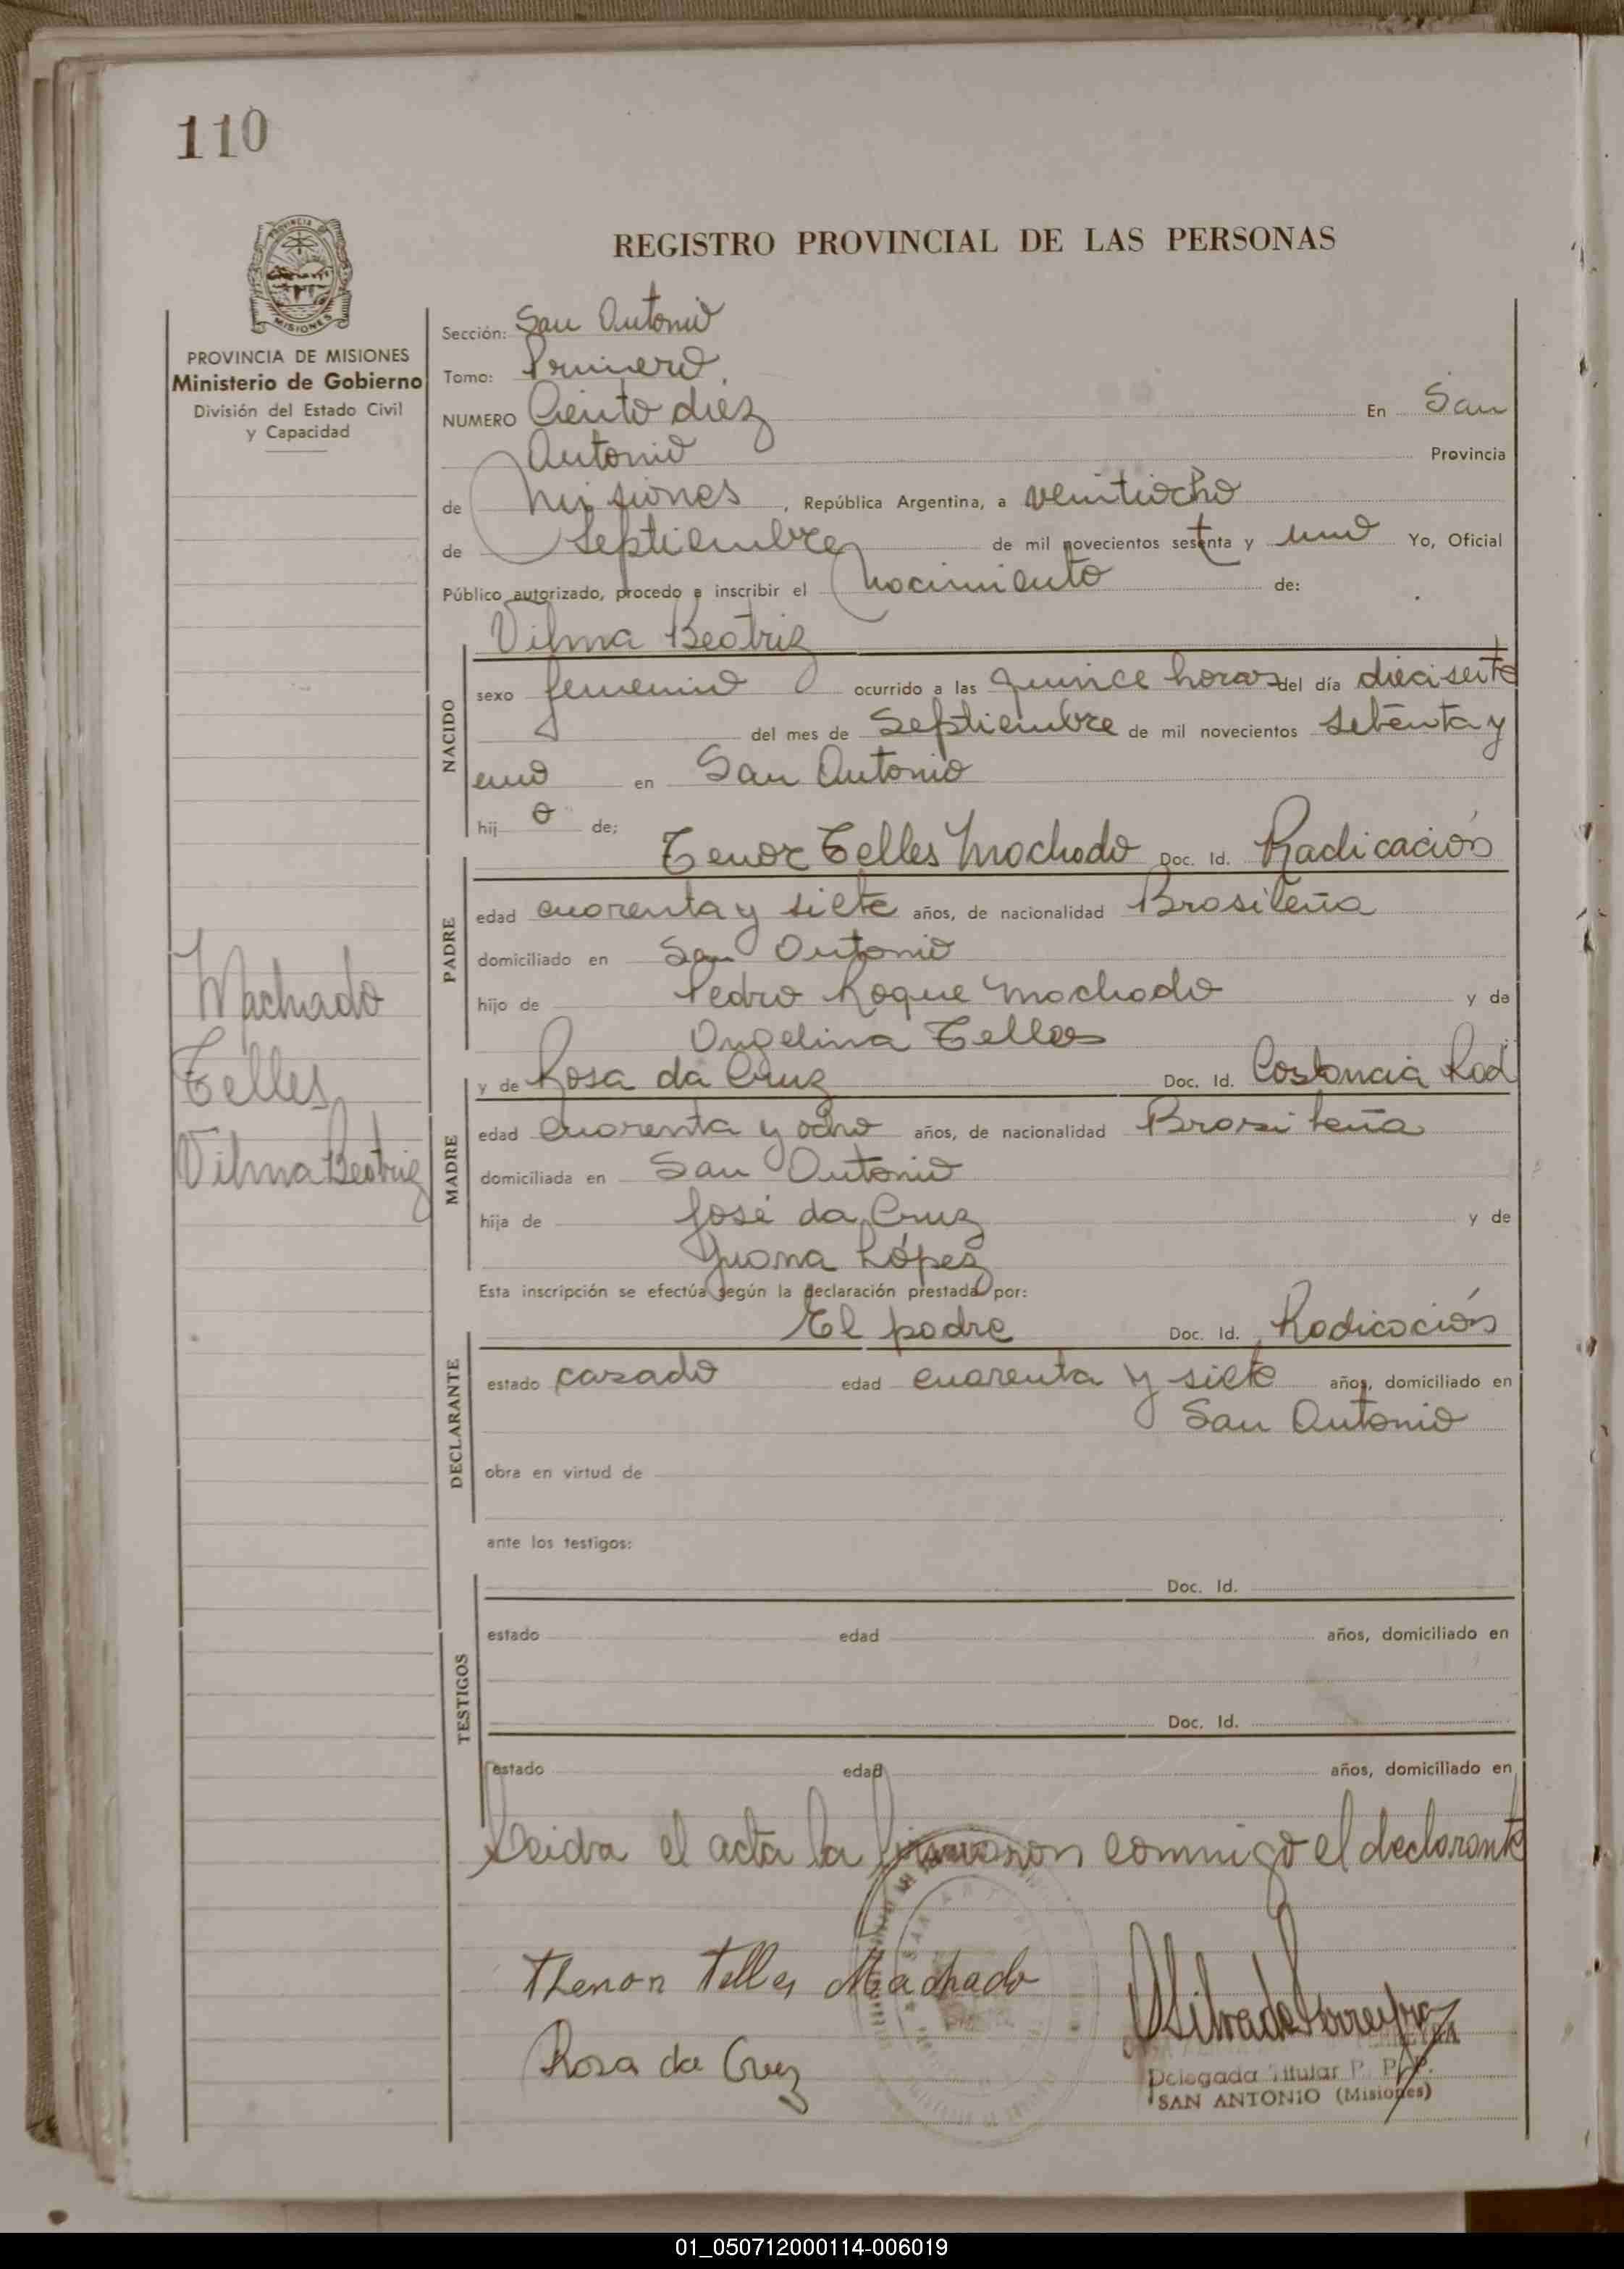 110
REGISTRO PROVINCIAL DE LAS PERSONAS
PROVINCIA DE MISIONES
MISIONES
PROVINCIA DE MISIONES
Ministerio de Gobierno
División del Estado Civil
y Capacidad
Machado
Telles
Vilma Beatriz
Sección: San Antonio
Tomo: Primero
NUMERO Ciento diez En San
Antonio Provincia
de Misiones, República Argentina, a veintiocho
de Septiembre de mil novecientos setenta y uno Yo, Oficial
Público autorizado, procedo a inscribir el Nacimiento de:
Vilma Beatriz
NACIDO
sexo femenino ocurrido a las quince horas del día diecisiete
del mes de Septiembre de mil novecientos setenta y
uno en San Antonio
hij a de:
PADRE
Tenor Telles Machado Doc. Id. Radicación
edad cuarenta y siete años, de nacionalidad Brasileña
domiciliado en San Antonio
hijo de Pedro Roque Machado y de
Angelina Telles
MADRE
y de Rosa da Cruz Doc. Id. Costancia Rad
edad cuarenta y ocho años, de nacionalidad Brasileña
domiciliada en San Antonio
hija de José da Cruz y de
Juana López
Esta inscripción se efectúa según la declaración prestada por:
DECLARANTE
El padre Doc. Id. Radicación
estado casado edad cuarenta y siete años, domiciliado en
San Antonio
obra en virtud de
ante los testigos:
TESTIGOS
Doc. Id.
estado edad años, domiciliado en
Doc. Id.
estado edad años, domiciliado en
Leida el acta la firmaron conmigo el declarante
Thenon Telles Machado
Rosa da Cruz
Delegada Titular R. P. P.
SAN ANTONIO (Misiones)
01_050712000114-006019